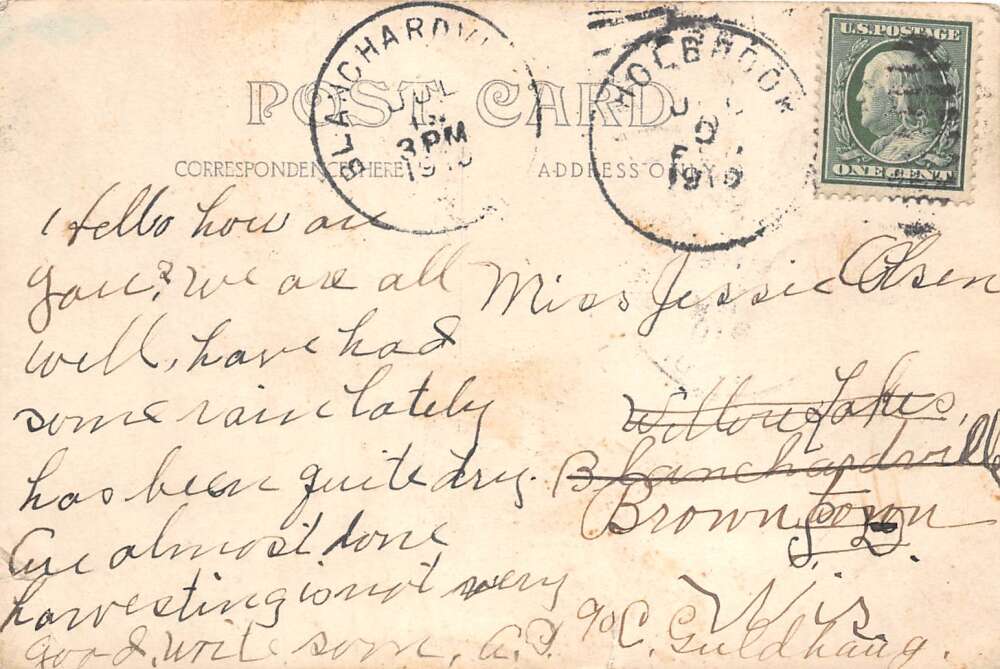 BLANCHARDV
JUL
3 PM
1910
HOLBROOK
1910
U.S. POSTAGE
ONE CENT
POST CARD
CORRESPONDENCE HERE
ADDRESS ONLY
Hello how are
you? We are all
well, have had
some rain lately
has been quite dry.
Are almost done
harvesting is not very
good. write soon, A.J.
Miss Jessie Olsen
Willow Lakes,
Blanchardville
Browntown
S.D.
Wis.
c/o C. Guldhaug.